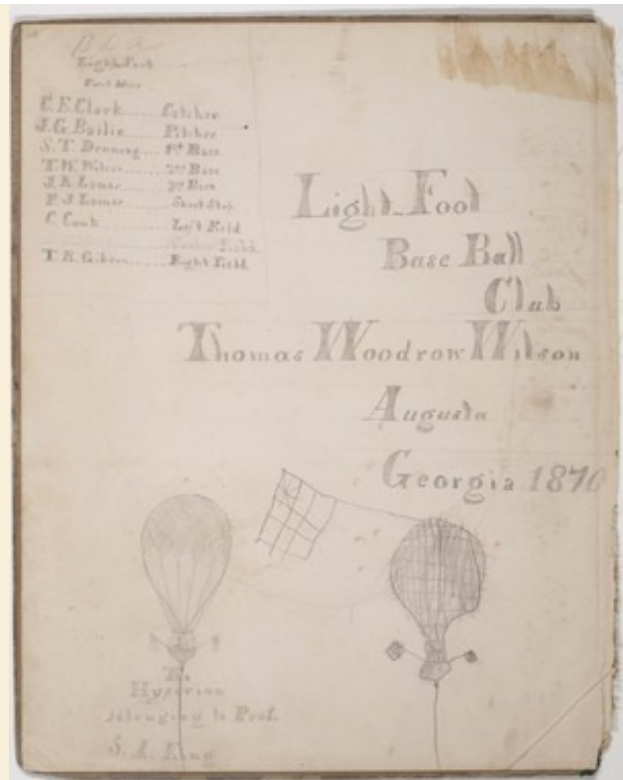 Light Foot
First Nine
C. F. Clark ...... Catcher
J. G. Bailie ...... Pitcher
S. T. Denning .... 1st Base
T. W. Wilson .... 2nd Base
J. R. Lamar ..... 3rd Base
P. J. Lamar ..... Short Stop
C. Cook ..... Left Field
Center Field
T. R. Gibson ...... Right Field
Light Foot
Base Ball
Club
Thomas Woodrow Wilson
Augusta
Georgia 1870
The
Hyperion
belonging to Prof.
S. A. King